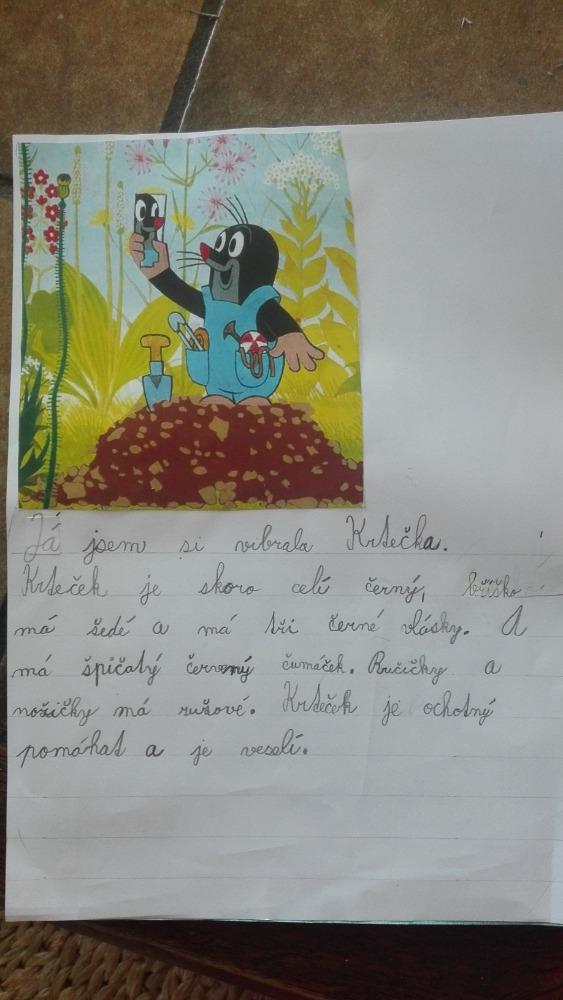 Já jsem si vibrala Krtečka.
Krteček je skoro celí černý, bříško
má šedé a má tři černé vlásky. A
má špičatý červený čumáček. Ručičky a
nožičky má ružové. Krteček je ochotný
pomáhat a je veselí.